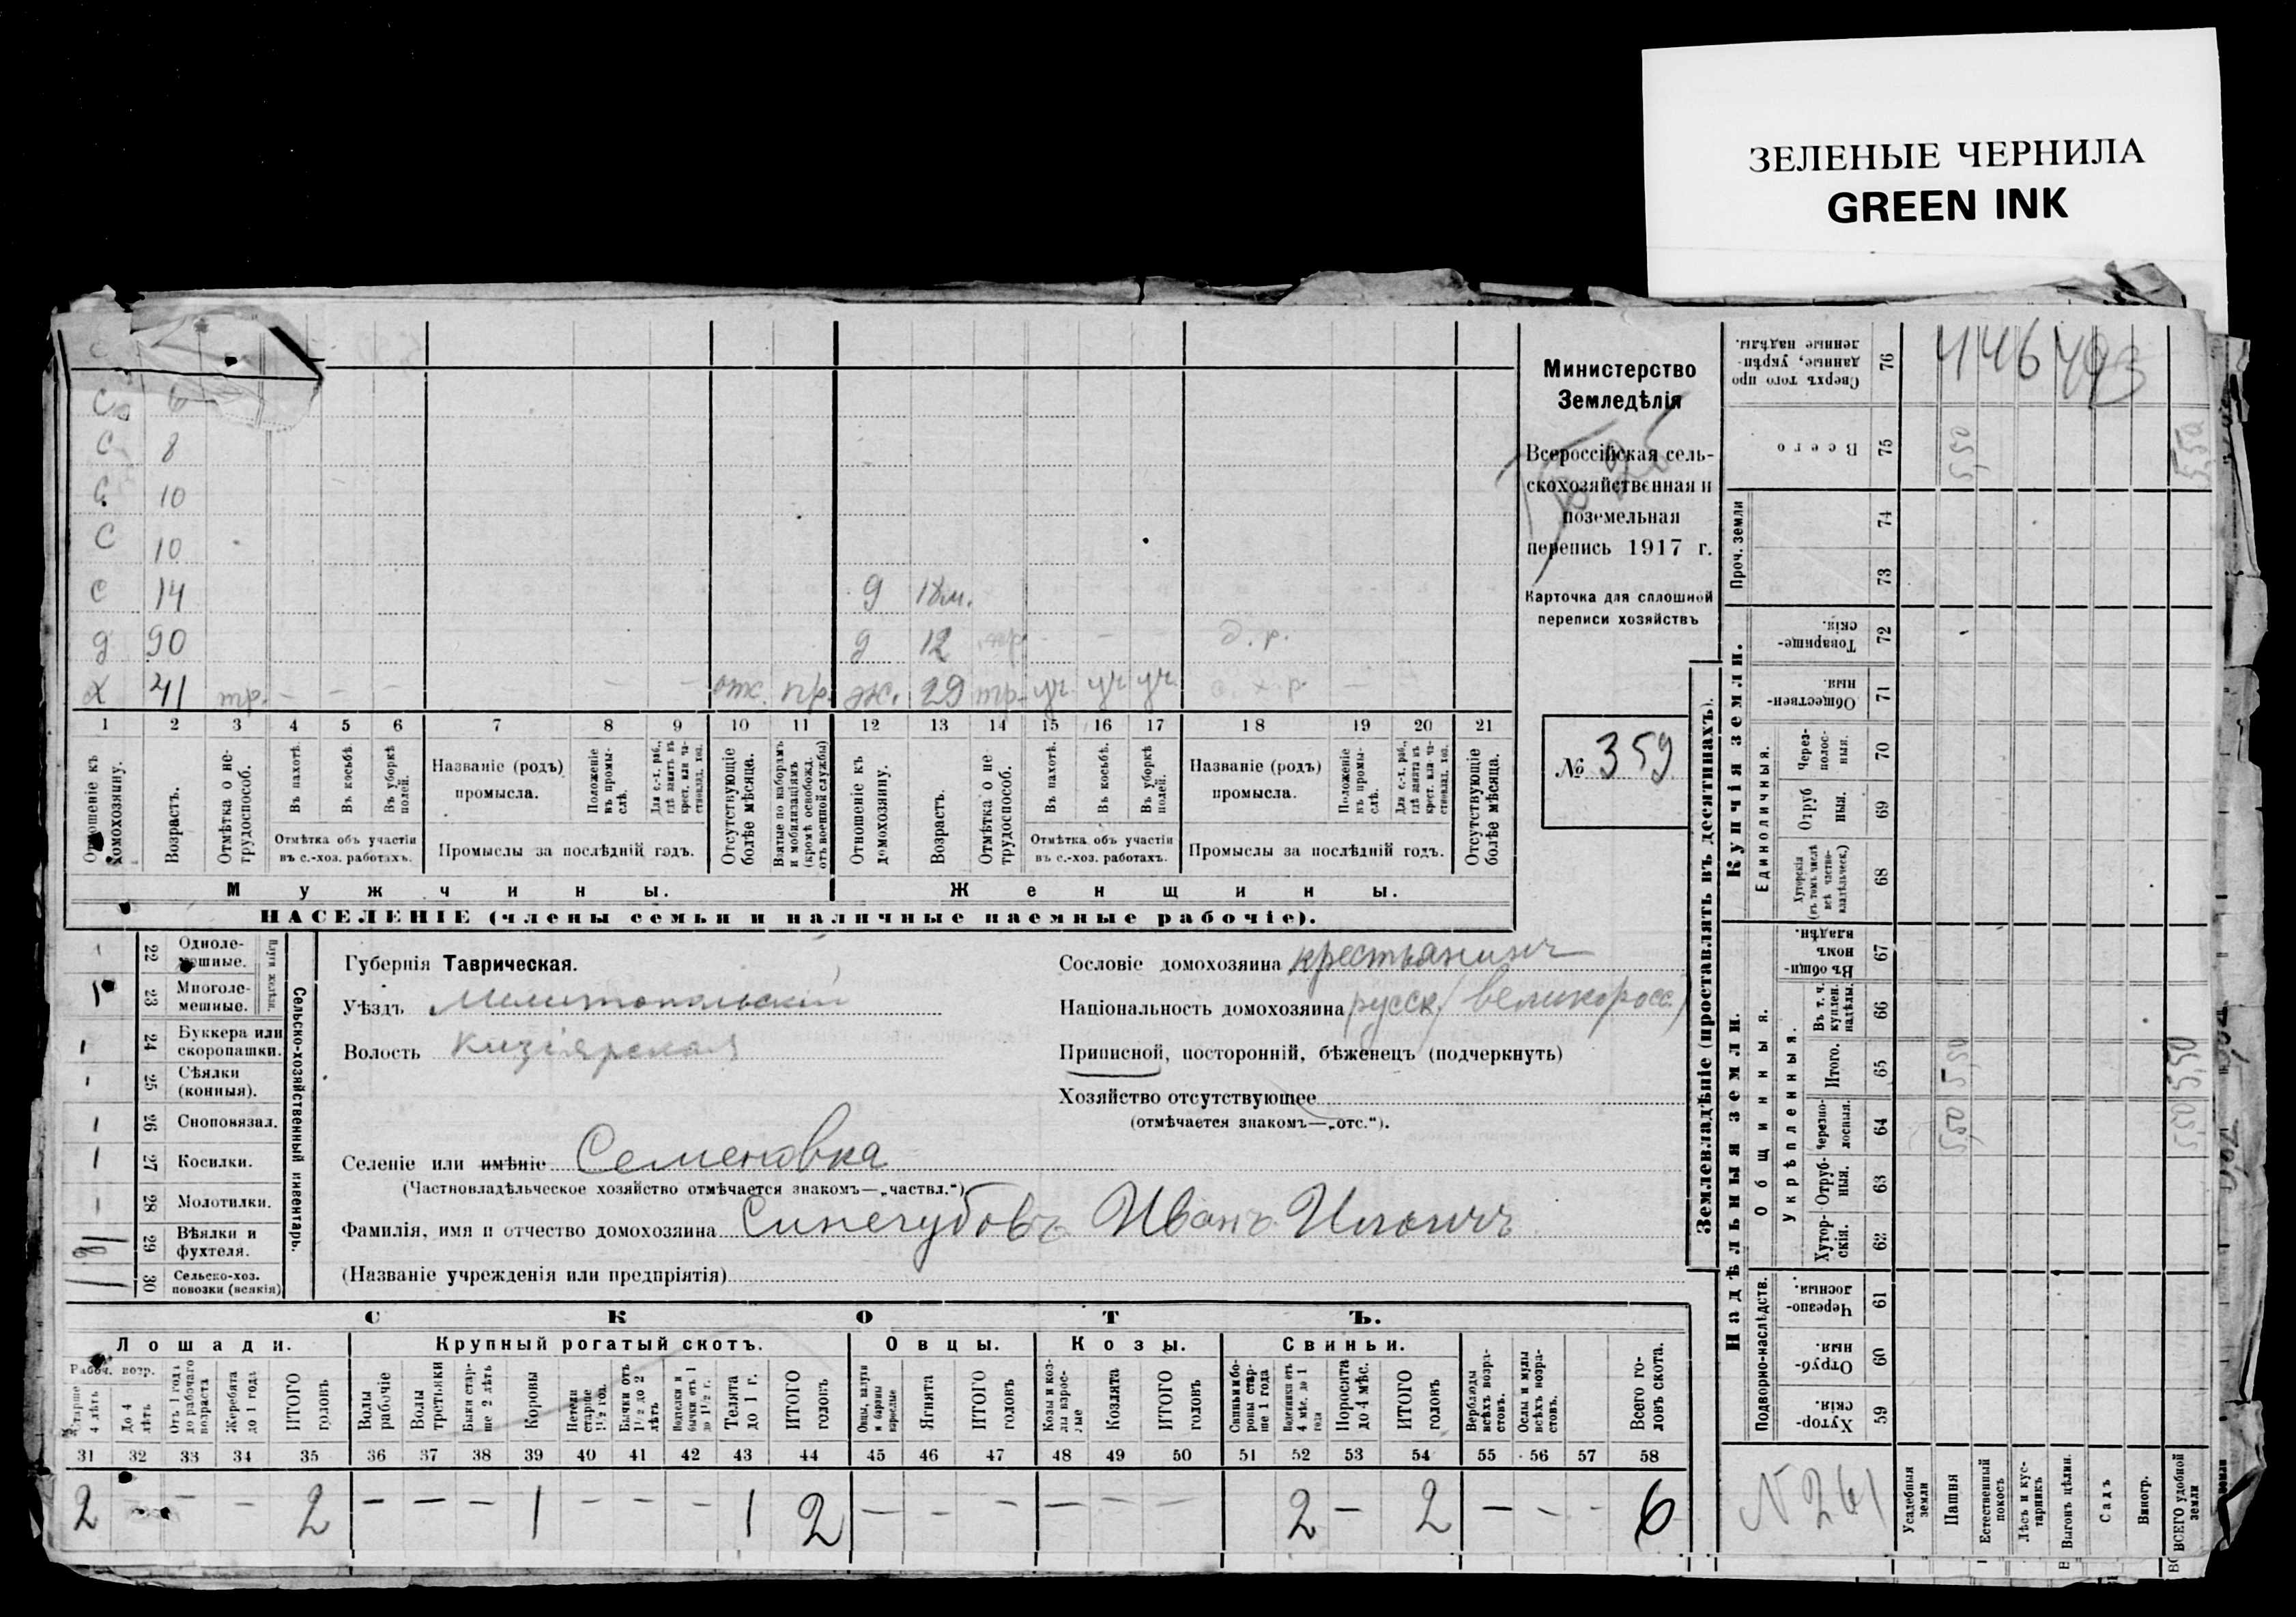 ЗЕЛЕНЫЕ ЧЕРНИЛА
GREEN INK
С 6
С 8
С 10
С 10
С 14 д 18м.
д 90 д 12 д.р.
Х 41 тр. – – – – – – отж. пр. ж. 29 тр. уч. уч. уч. с.х.р. –
1 2 3 4 5 6 7 8 9 10 11 12 13 14 15 16 17 18 19 20 21
Отношеніе къ домохозяину.
Возрастъ.
Отмѣтка о нетрудоспособ.
Въ пахотѣ.
Въ косьбѣ.
Въ уборкѣ полей.
Отмѣтка объ участіи въ с.-хоз. работахъ.
Названіе (родъ) промысла.
Положеніе въ промыслѣ.
Для с.-х. раб., гдѣ занятъ въ крест. или частновлад. хоз.
Промыслы за послѣдній годъ.
Отсутствующіе болѣе мѣсяца.
Взятые по наборамъ и мобилизаціямъ (кромѣ освобожд. отъ военной службы)
Отношеніе къ домохозяину.
Возрастъ.
Отмѣтка о нетрудоспособ.
Въ пахотѣ.
Въ косьбѣ.
Въ уборкѣ полей.
Отмѣтка объ участіи въ с.-хоз. работахъ.
Названіе (родъ) промысла.
Положеніе въ промыслѣ.
Для с.-х. раб., гдѣ занята въ крест. или частновлад. хоз.
Промыслы за послѣдній годъ.
Отсутствующіе болѣе мѣсяца.
Мужчины. Женщины.
НАСЕЛЕНІЕ (члены семьи и наличные наемные рабочіе).
Министерство
Земледѣлія
Всероссійская сель-
скохозяйственная и
поземельная
перепись 1917 г.
Карточка для сплошной
переписи хозяйствъ
№ 359
22 Одноле-мешные.
23 Многоле-мешные.
Плуги желѣзн.
24 Буккера или скоропашки.
25 Сѣялки (конныя).
26 Сноповязал.
27 Косилки.
28 Молотилки.
29 Вѣялки и фухтеля.
30 Сельско-хоз. повозки (всякія)
Сельско-хозяйственный инвентарь.
Губернія Таврическая.
Уѣздъ Мелитопольскій
Волость Кизіярская
Сословіе домохозяина крестьянинъ
Національность домохозяина русск. (великоросс.)
Приписной, посторонній, бѣженецъ (подчеркнуть)
Хозяйство отсутствующее
(отмѣчается знакомъ—„отс.“).
Селеніе или имѣніе Семеновка
(Частновладѣльческое хозяйство отмѣчается знакомъ—„частвл.“)
Фамилія, имя и отчество домохозяина Синегубовъ Иванъ Ильичъ
(Названіе учрежденія или предпріятія)
СКОТЪ.
Лошади. Крупный рогатый скотъ. Овцы. Козы. Свиньи.
Рабоч. возр.
Старше 4 лѣтъ
До 4 лѣтъ
Отъ 1 года до рабочаго возраста
Жеребята до 1 года
ИТОГО головъ
Волы рабочіе
Волы третьяки
Быки старше 2 лѣтъ
Коровы
Нетели старше 1½ год.
Бычки отъ 1½ до 2 лѣтъ
Подтелки и бычки отъ 1 до 1½ г.
Телята до 1 г.
ИТОГО головъ
Овцы, валухи и бараны взрослые
Ягнята
ИТОГО головъ
Козы и козлы взрослые
Козлята
ИТОГО головъ
Свиньи боровы старше 1 года
Подсвинки отъ 4 мѣс. до 1 года
Поросята до 4 мѣс.
ИТОГО головъ
Верблюды всѣхъ возрастовъ.
Ослы и мулы всѣхъ возрастовъ.
Всего головъ скота.
31 32 33 34 35 36 37 38 39 40 41 42 43 44 45 46 47 48 49 50 51 52 53 54 55 56 57 58
2 – – – 2 – – – 1 – – – 1 2 – – – – – – 2 – 2 – – – 6
Землевладѣніе (проставлять въ десятинахъ).
Надѣльныя земли. Купчія земли. Проч. земли
Общинныя.
Укрѣпленныя.
Единоличныя.
Подворно-наслѣдств.
76 Сверхъ того проданные, укрѣпленные надѣлы.
75 Всего
74
73
72 Товарищескія.
71 Общественныя.
70 Черезполосныя.
69 Отрубныя.
68 Хуторскія (въ томъ числѣ всѣ частновладѣльческ.)
67 Въ общинномъ владѣн.
66 Въ т. ч. куплен. надѣлы.
65 Итого.
64 Черезполосныя.
63 Отрубныя.
62 Хуторскія.
61 Черезполосныя.
60 Отрубныя.
59 Хуторскія.
446 493
5,50
5,50
5,50 5,50
5,50 5,50
N 261
Усадебныя земли
Пашня
Естественный покосъ
Лѣсъ и кустарникъ
Выгонъ цѣлин.
Садъ
Виногр.
ВСЕГО удобной земли